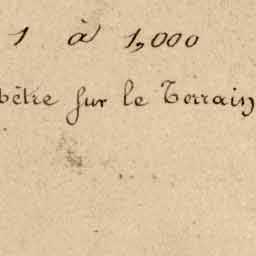 1 à 1,000
mètre sur le Terrain